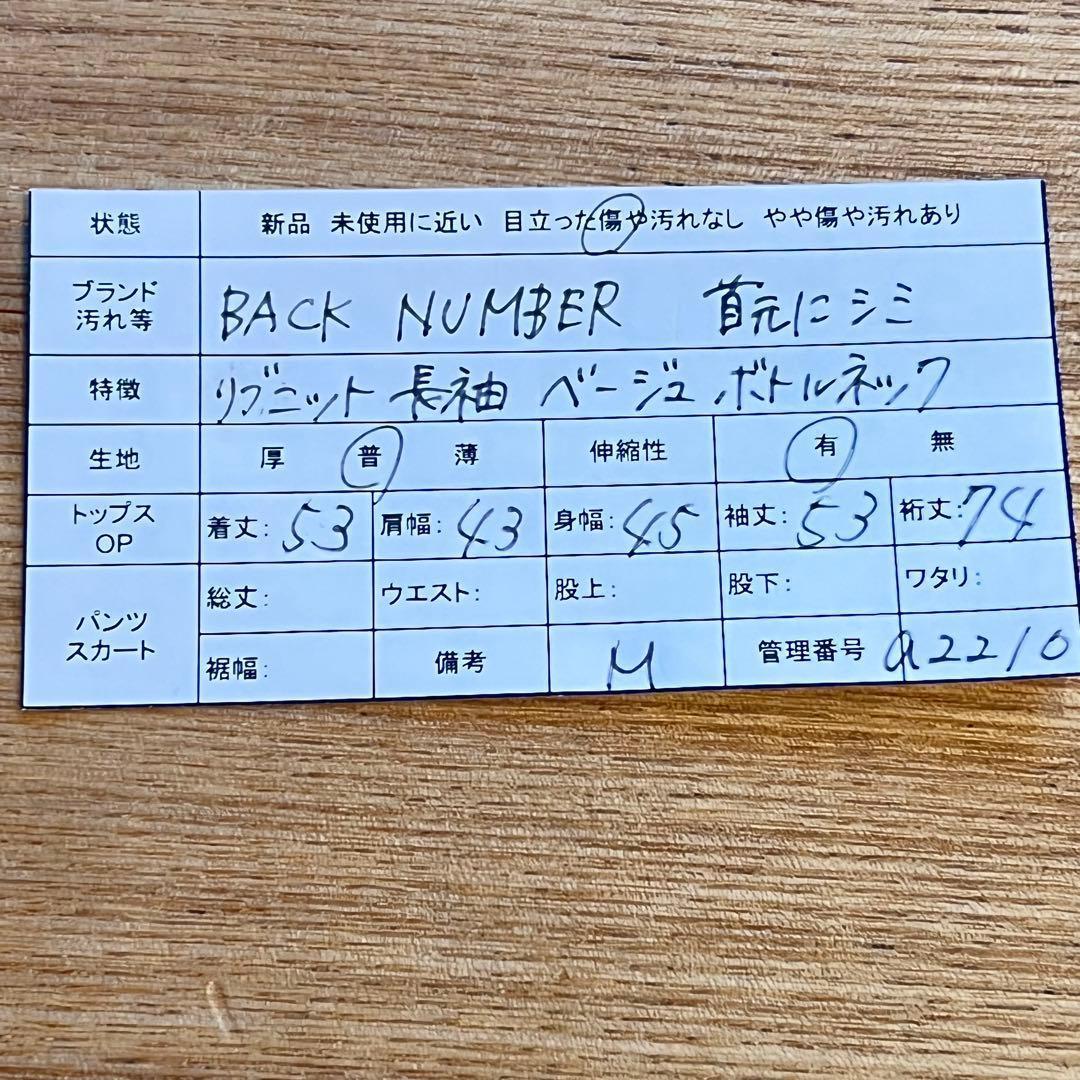 状態 新品 未使用に近い 目立った傷や汚れなし やや傷や汚れあり
ブランド
汚れ等 BACK NUMBER 首元にシミ
特徴 リブニット 長袖 ベージュ ボトルネック
生地 厚 普 薄 伸縮性 有 無
トップス
OP 着丈: 53 肩幅: 43 身幅: 45 袖丈: 53 裄丈: 74
パンツ
スカート 総丈: ウエスト: 股上: 股下: ワタリ:
裾幅: 備考 M 管理番号 a2210